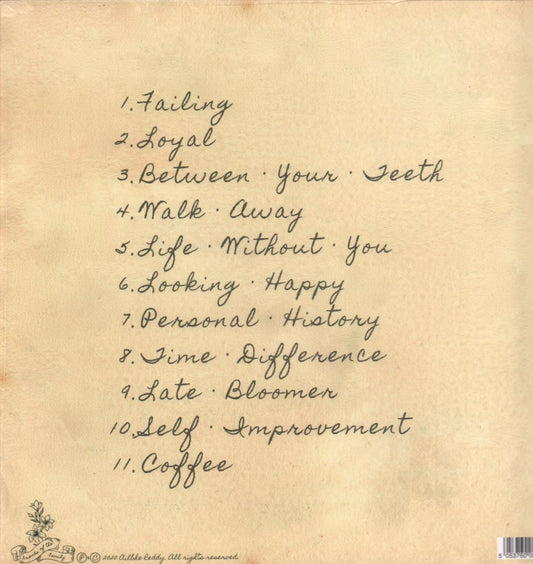 1. Failing
2. Loyal
3. Between · Your · Teeth
4. Walk · Away
5. Life · Without · You
6. Looking · Happy
7. Personal · History
8. Time · Difference
9. Late · Bloomer
10. Self · Improvement
11. Coffee
Friends of the Family
℗ © 2020 Ailbhe Reddy. All rights reserved